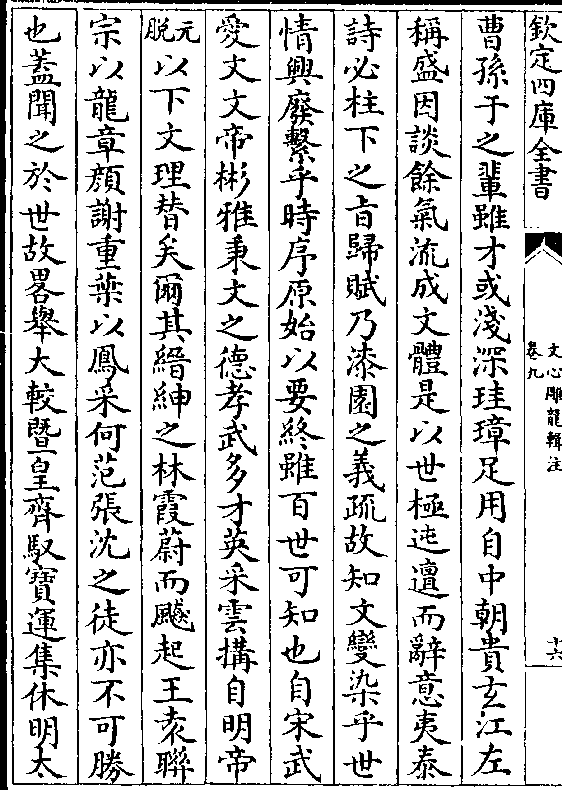 欽定四庫全書
文心雕龍輯注
卷九
十六
曹孫于之輩雖才或淺深珪璋足用自中朝貴玄江左
稱盛因談餘氣流成文體是以世極迍邅而辭意夷泰
詩必柱下之㫖歸賦乃漆園之義疏故知文變染乎世
情興廢繫乎時序原始以要終雖百世可知也自宋武
愛文文帝彬雅秉文之德孝武多才英采雲搆自明帝
元脱以下文理替矣爾其縉紳之林霞蔚而飈起王袁聯
宗以龍章顔謝重葉以鳳采何范張沈之徒亦不可勝
也蓋聞之於世故畧舉大較暨皇齊馭寶運集休明太